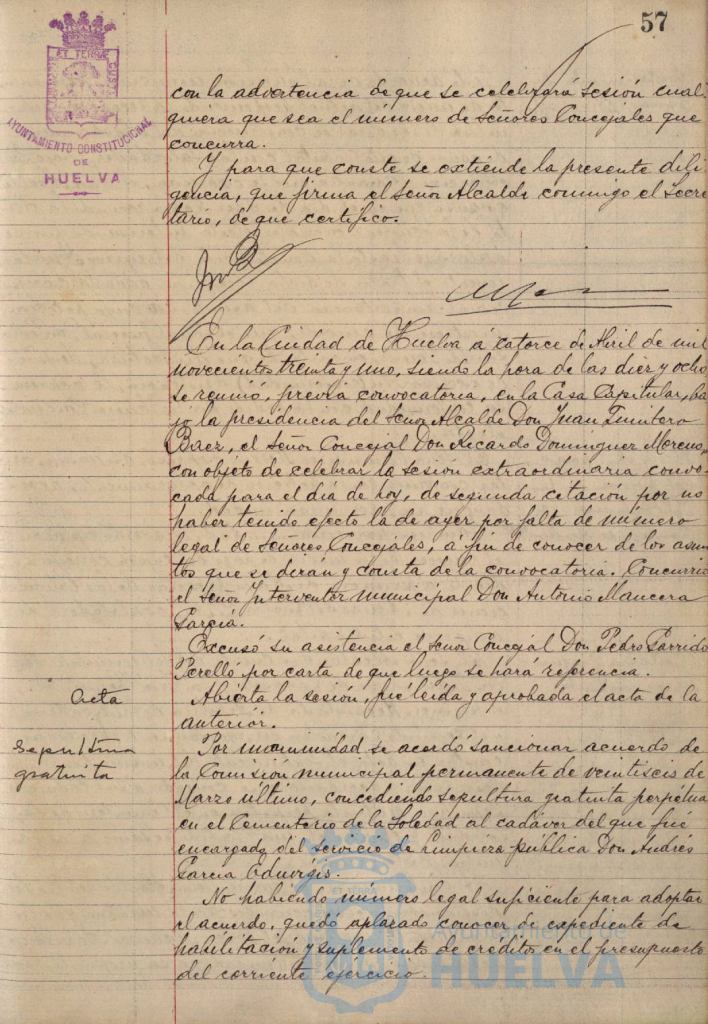 57
ET TERRE CUSTO
AYUNTAMIENTO CONSTITUCIONAL
DE
HUELVA
con la advertencia de que se celebrará sesión cual-
quiera que sea el número de Señores Concejales que
concurra.
Y para que conste se extiende la presente dili-
gencia, que firma el Señor Alcalde conmigo el Secre-
tario, de que certifico.
En la Ciudad de Huelva á catorce de Abril de mil
novecientos treinta y uno, siendo la hora de las diez y ocho
se reunió, prévia convocatoria, en la Casa Capitular, ba-
jo la presidencia del Señor Alcalde Don Juan Quintero
Baez, el Señor Concejal Don Ricardo Dominguez Moreno,
con objeto de celebrar la sesión extraordinaria convo-
cada para el día de hoy, de segunda citación por no
haber tenido efecto la de ayer por falta de número
legal de Señores Concejales, á fin de conocer de los asun-
tos que se dirán y consta de la convocatoria. Concurrió
el Señor Interventor municipal Don Antonio Mancera
García.
Excusó su asistencia el Señor Concejal Don Pedro Garrido
Perelló por carta de que luego se hará referencia.
Acta
Abierta la sesión, fué leida y aprobada el acta de la
anterior.
Sepultura
gratuita
Por unanimidad se acordó sancionar acuerdo de
la Comisión municipal permanente de veintiseis de
Marzo último, concediendo sepultura gratuita perpétua
en el Cementerio de la Soledad al cadáver del que fué
encargado del servicio de limpieza pública Don Andrés
García Eduvigis.
No habiendo número legal suficiente para adoptar
el acuerdo, quedó aplazado conocer de expediente de
habilitación y suplemento de créditos en el presupuesto
del corriente ejercicio.
HUELVA